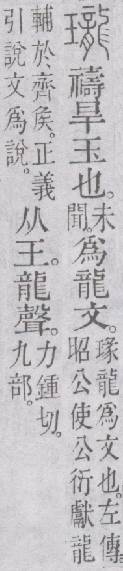 瓏禱旱玉也。未聞。爲龍文。瑑龍爲文也。左傳昭公使公衍獻龍
輔於齊矦。正義引說文爲說。从王。龍聲。力鍾切。九部。